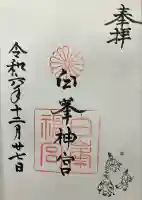 奉拝
白峯神宮
令和六年十二月廿七日
白峯神宮